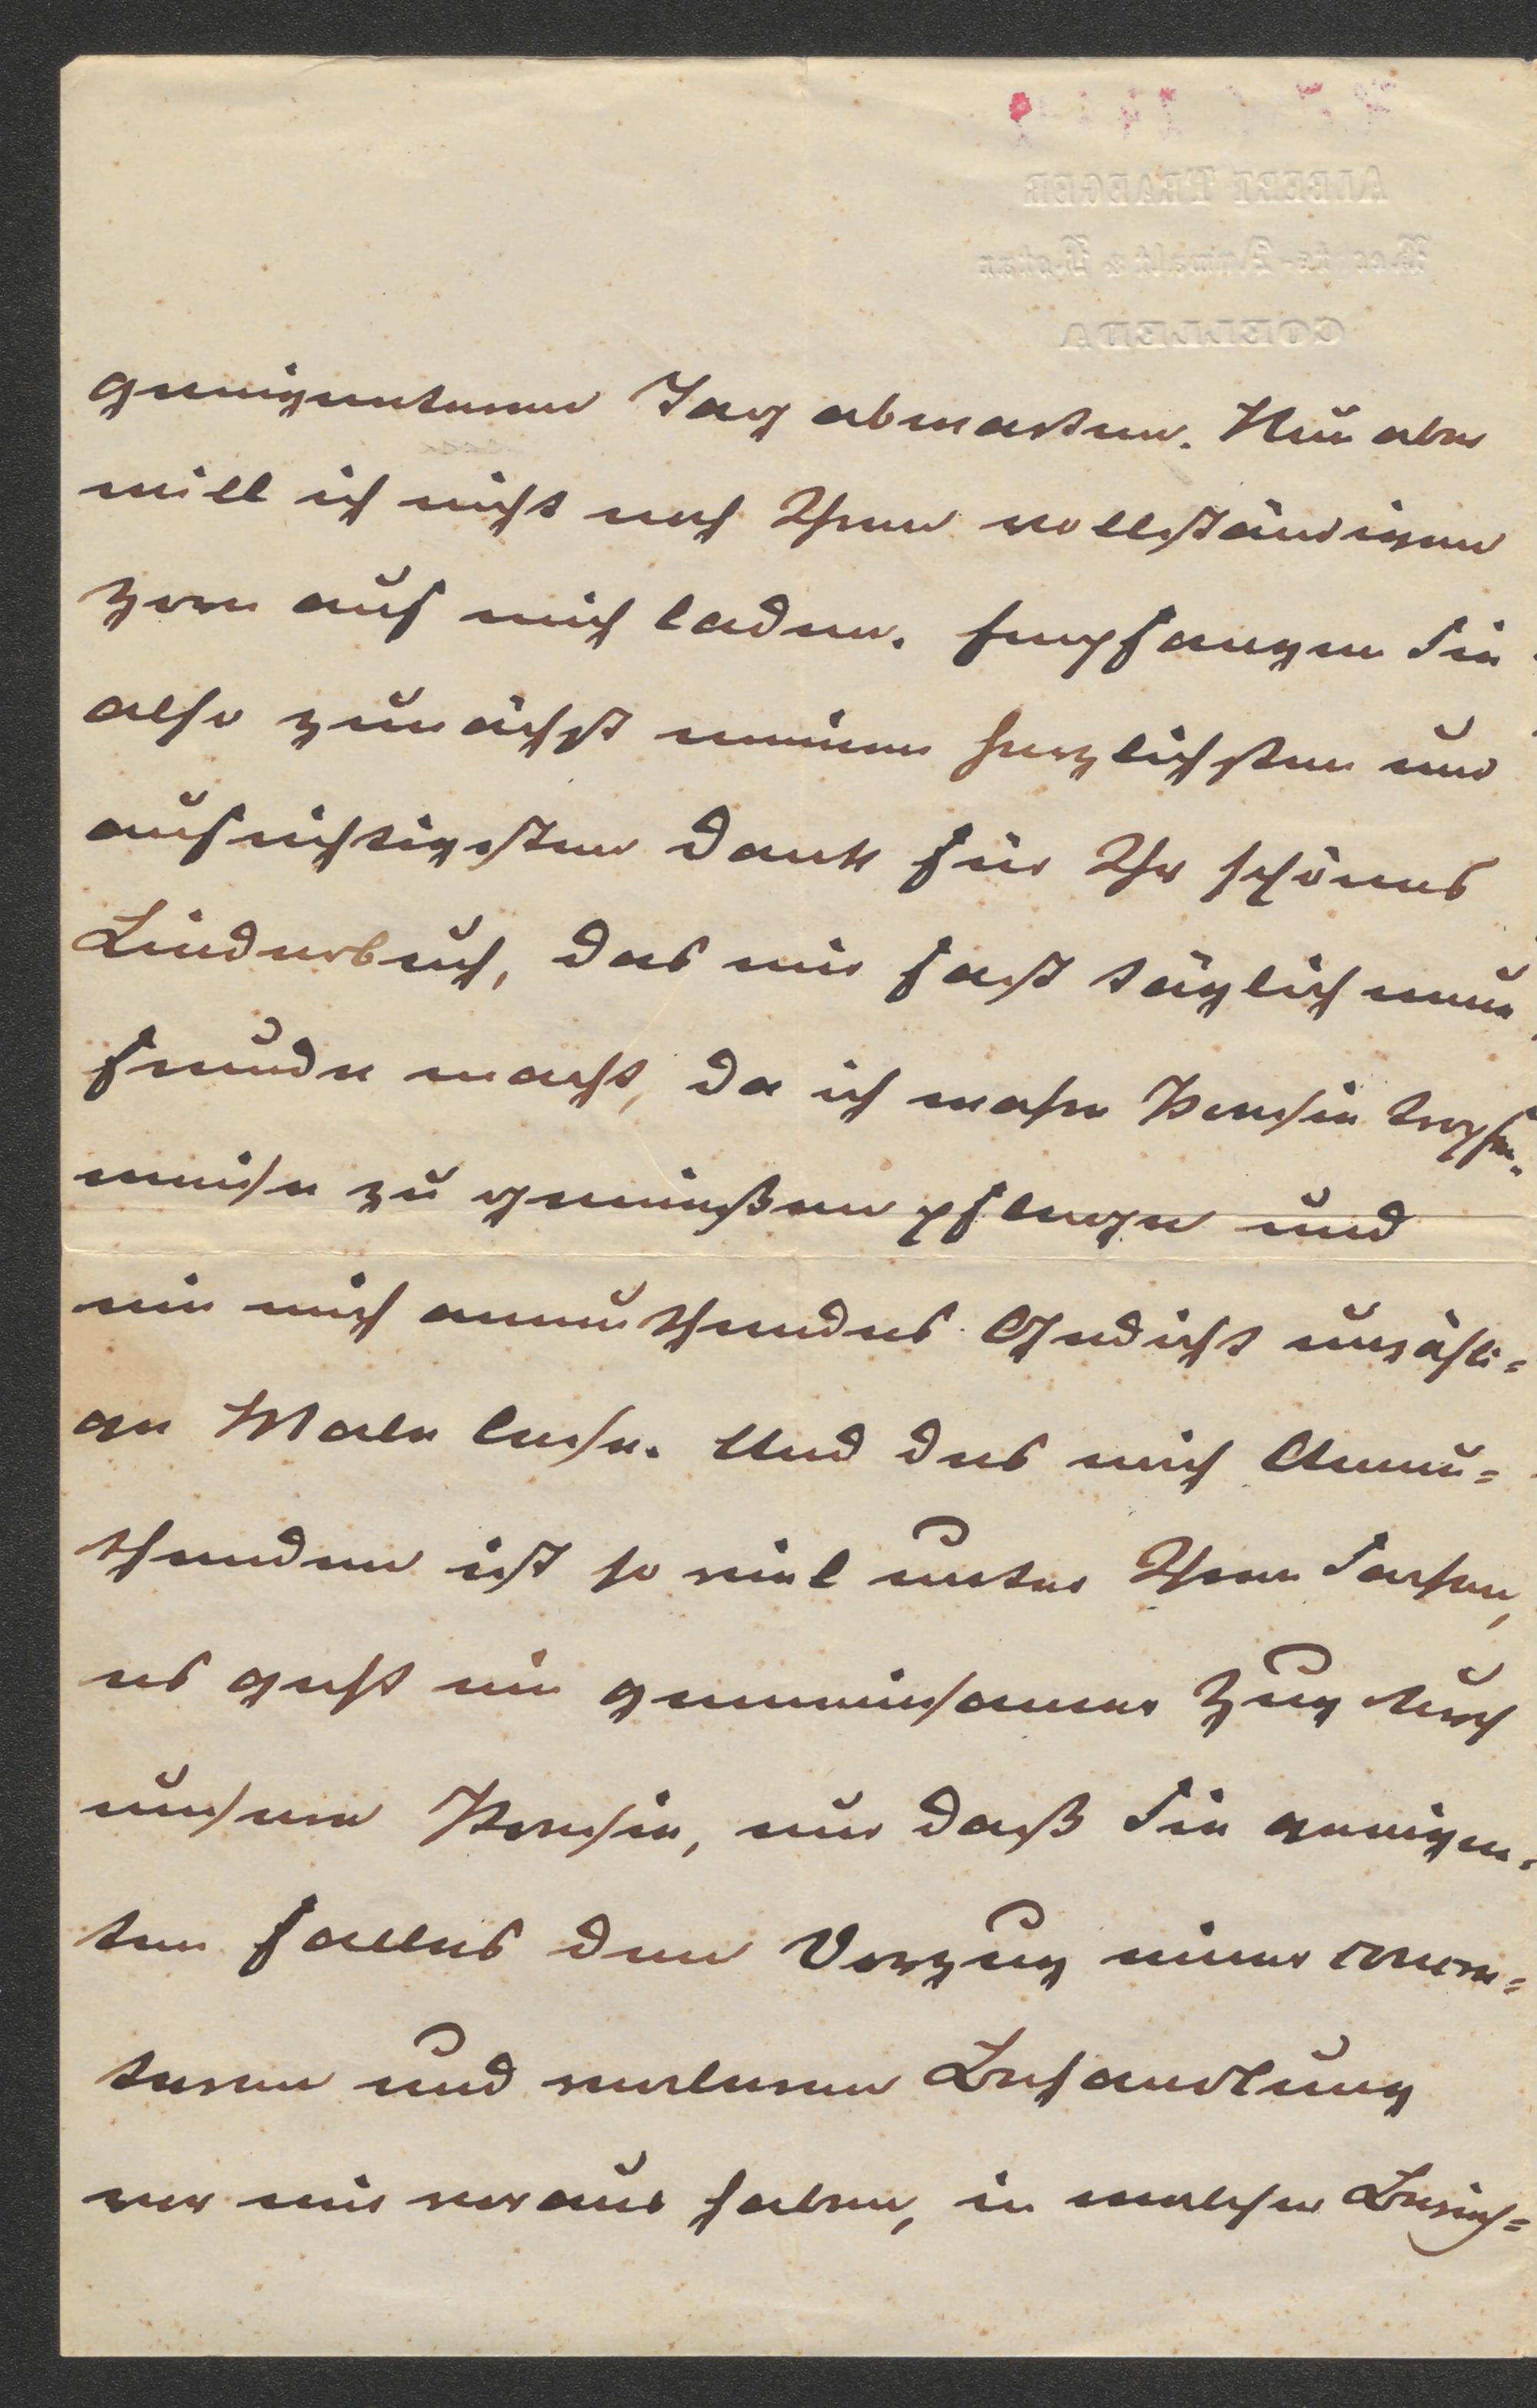 ALBERT TRAEGER
Rechts-Anwalt & Notar
COELLEDA
geeigneteren Tag abwarten. Nun aber
will ich nicht noch Ihren vollständigen
Zorn auf mich laden. Empfangen Sie
also zunächst meinen herzlichsten und
aufrichtigsten Dank für Ihr schönes
Liederbuch, das mir fast täglich neue
Freude macht, da ich wahre Poesie tropfen-
weise zu genießen pflege und
ein mich anmuthendes Gedicht unzähli=
ge Male lese. Und des mich Anmu=
thenden ist so viel unter Ihren Sachen,
es geht ein gemeinsamer Zug durch
unsere Poesie, nur daß Sie geeigne-
ten Falles den Vorzug einer
teren und Behandlung
vor mir voraus haben, in welcher Bezieh=